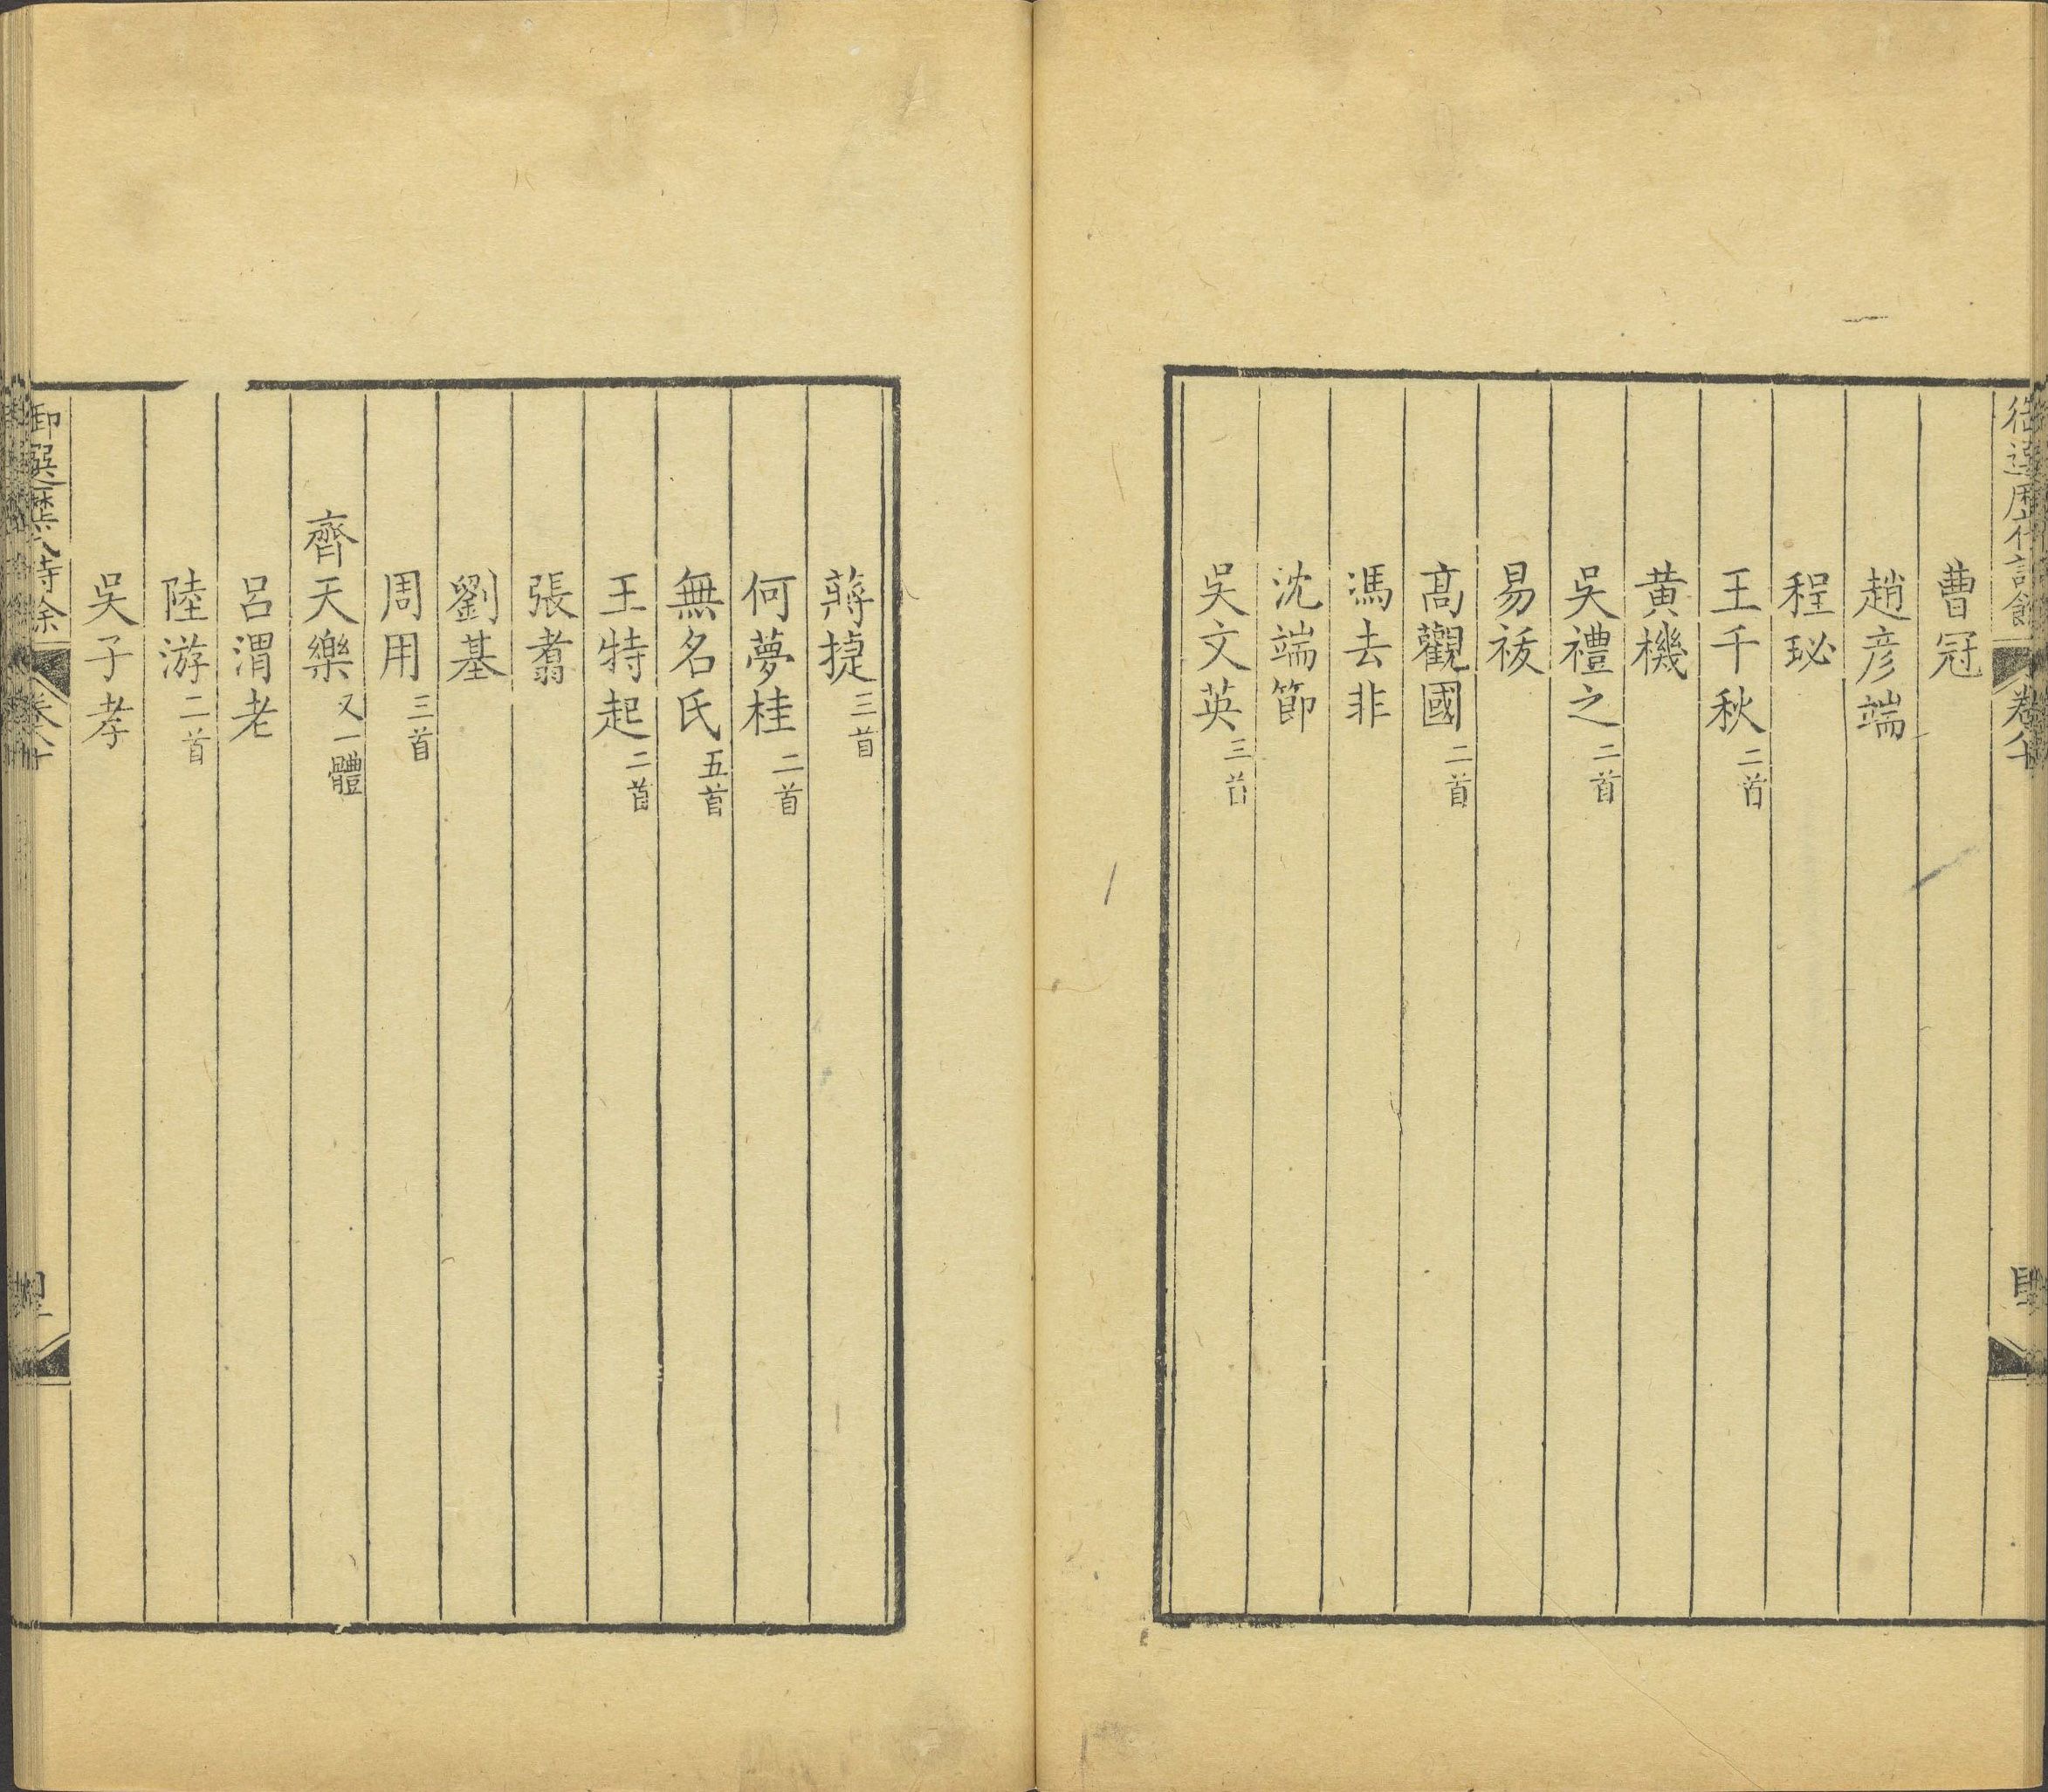 曹冠
趙彦端
程珌
王千秋二首
黄機
吳禮之二首
易祓
高觀國二首
馮去非
沈端節
吳文英三首
蔣捷三首
何夢桂二首
無名氏五首
王特起二首
張翥
劉基
周用三首
齊天樂又一體
呂渭老
陸游二首
吳子孝